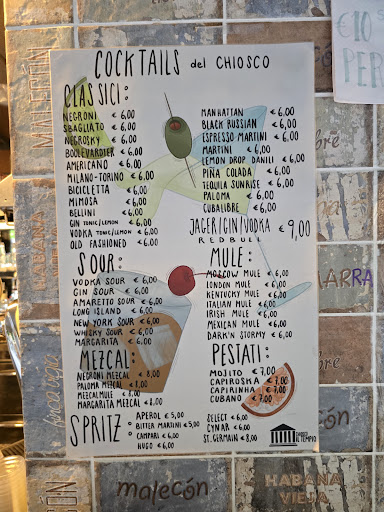 COCKTAILS del CHIOSCO
CLASSICI:
NEGRONI € 6,00
SBAGLIATO € 6,00
NEGROSKY € 6,00
BOULEVARDIER € 6,00
AMERICANO € 6,00
MILANO-TORINO € 6,00
BICICLETTA € 6,00
MIMOSA € 6,00
BELLINI € 6,00
GIN TONIC/LEMON € 6,00
VODKA TONIC/LEMON € 6,00
OLD FASHIONED € 6,00
MANHATTAN € 6,00
BLACK RUSSIAN € 6,00
ESPRESSO MARTINI € 6,00
MARTINI € 6,00
LEMON DROP DANILI € 6,00
PIÑA COLADA € 6,00
TEQUILA SUNRISE € 6,00
PALOMA € 6,00
CUBALIBRE € 6,00
JAGER/GIN/VODKA € 9,00
REDBULL
SOUR:
VODKA SOUR € 6,00
GIN SOUR € 6,00
AMARETTO SOUR € 6,00
LONG ISLAND € 6,00
NEW YORK SOUR € 6,00
WHISKY SOUR € 6,00
MARGARITA € 6,00
MULE:
MOSCOW MULE € 6,00
LONDON MULE € 6,00
KENTUCKY MULE € 6,00
ITALIAN MULE € 6,00
IRISH MULE € 6,00
MEXICAN MULE € 6,00
DARK'N STORMY € 6,00
MEZCAL:
NEGRONI MEZCAL € 8,00
PALOMA MEZCAL € 8,00
MEZCALMULE € 8,00
MARGARITA MEZCAL € 8,00
PESTATI:
MOJITO € 7,00
CAPIROSKA € 7,00
CAPIRINHA € 7,00
CUBANO € 7,00
SPRITZ
APEROL € 5,00
BITTER MARTINI € 5,00
CAMPARI € 6,00
HUGO € 6,00
SELECT € 6,00
CYNAR € 6,00
ST. GERMAIN € 8,00
AL TEMPIO
€10
PER
MALECÓN
HABANA
malecón
HABANA
VIEJA